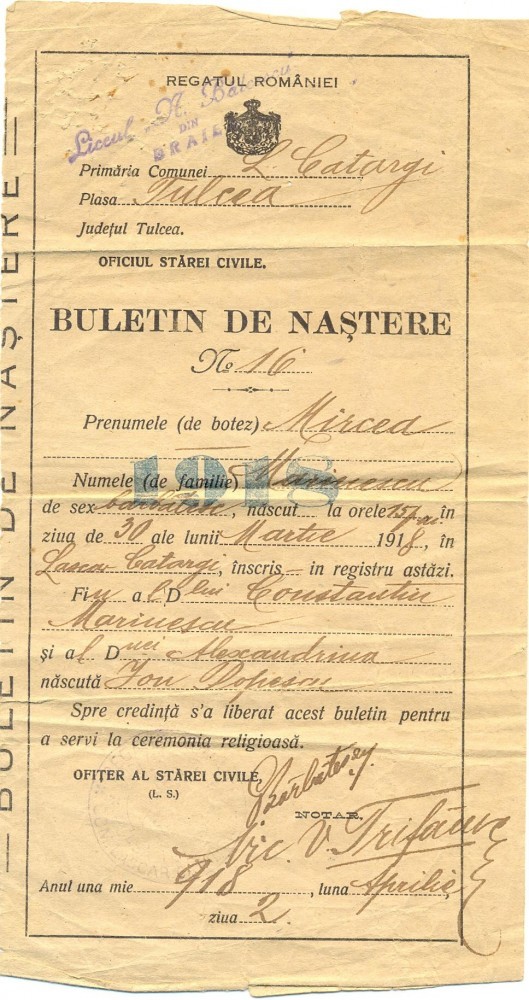 BULETIN DE NAȘTERE
REGATUL ROMÂNIEI
Liceul „N. Bălcescu"
DIN
BRAILA
Primăria Comunei L Catargi
Plasa Tulcea
Județul Tulcea.
OFICIUL STĂREI CIVILE.
BULETIN DE NAȘTERE
No 16
Prenumele (de botez) Mircea
1918
Numele (de familie) Marinescu
de sex bărbătesc, născut la orele în
ziua de 30 ale lunii Martie 1918, în
Lascar Catargi, înscris în registru astăzi.
Fiu al Dlui Constantin
Marinescu
și al Dnei Alexandrina
născută Ion Popescu
Spre credință s'a liberat acest buletin pentru
a servi la ceremonia religioasă.
OFIȚER AL STĂREI CIVILE,
(L. S.)
NOTAR,
V.
Anul una mie 918, luna Aprilie,
ziua 2.